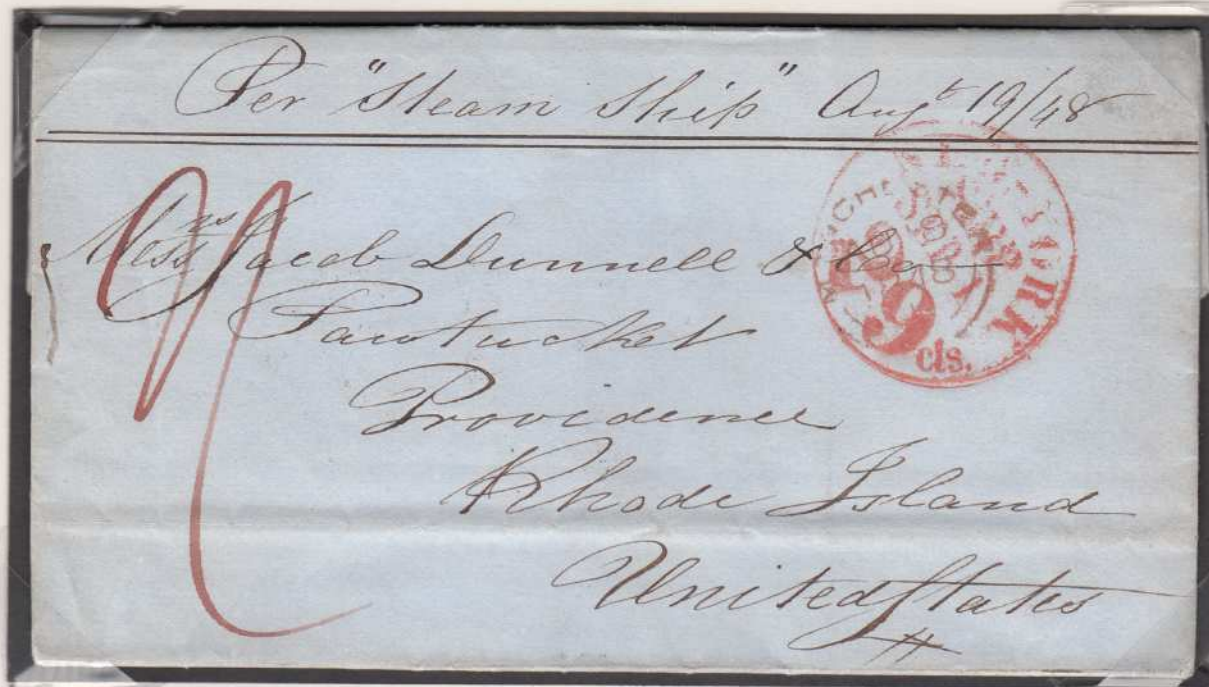 Per "Steam Ship" Augt 19/48
Messrs Jacob Dunnell & Co
Pawtucket
Providence
Rhode Island
United States
NEW YORK
MANCHESTER
29 cts.